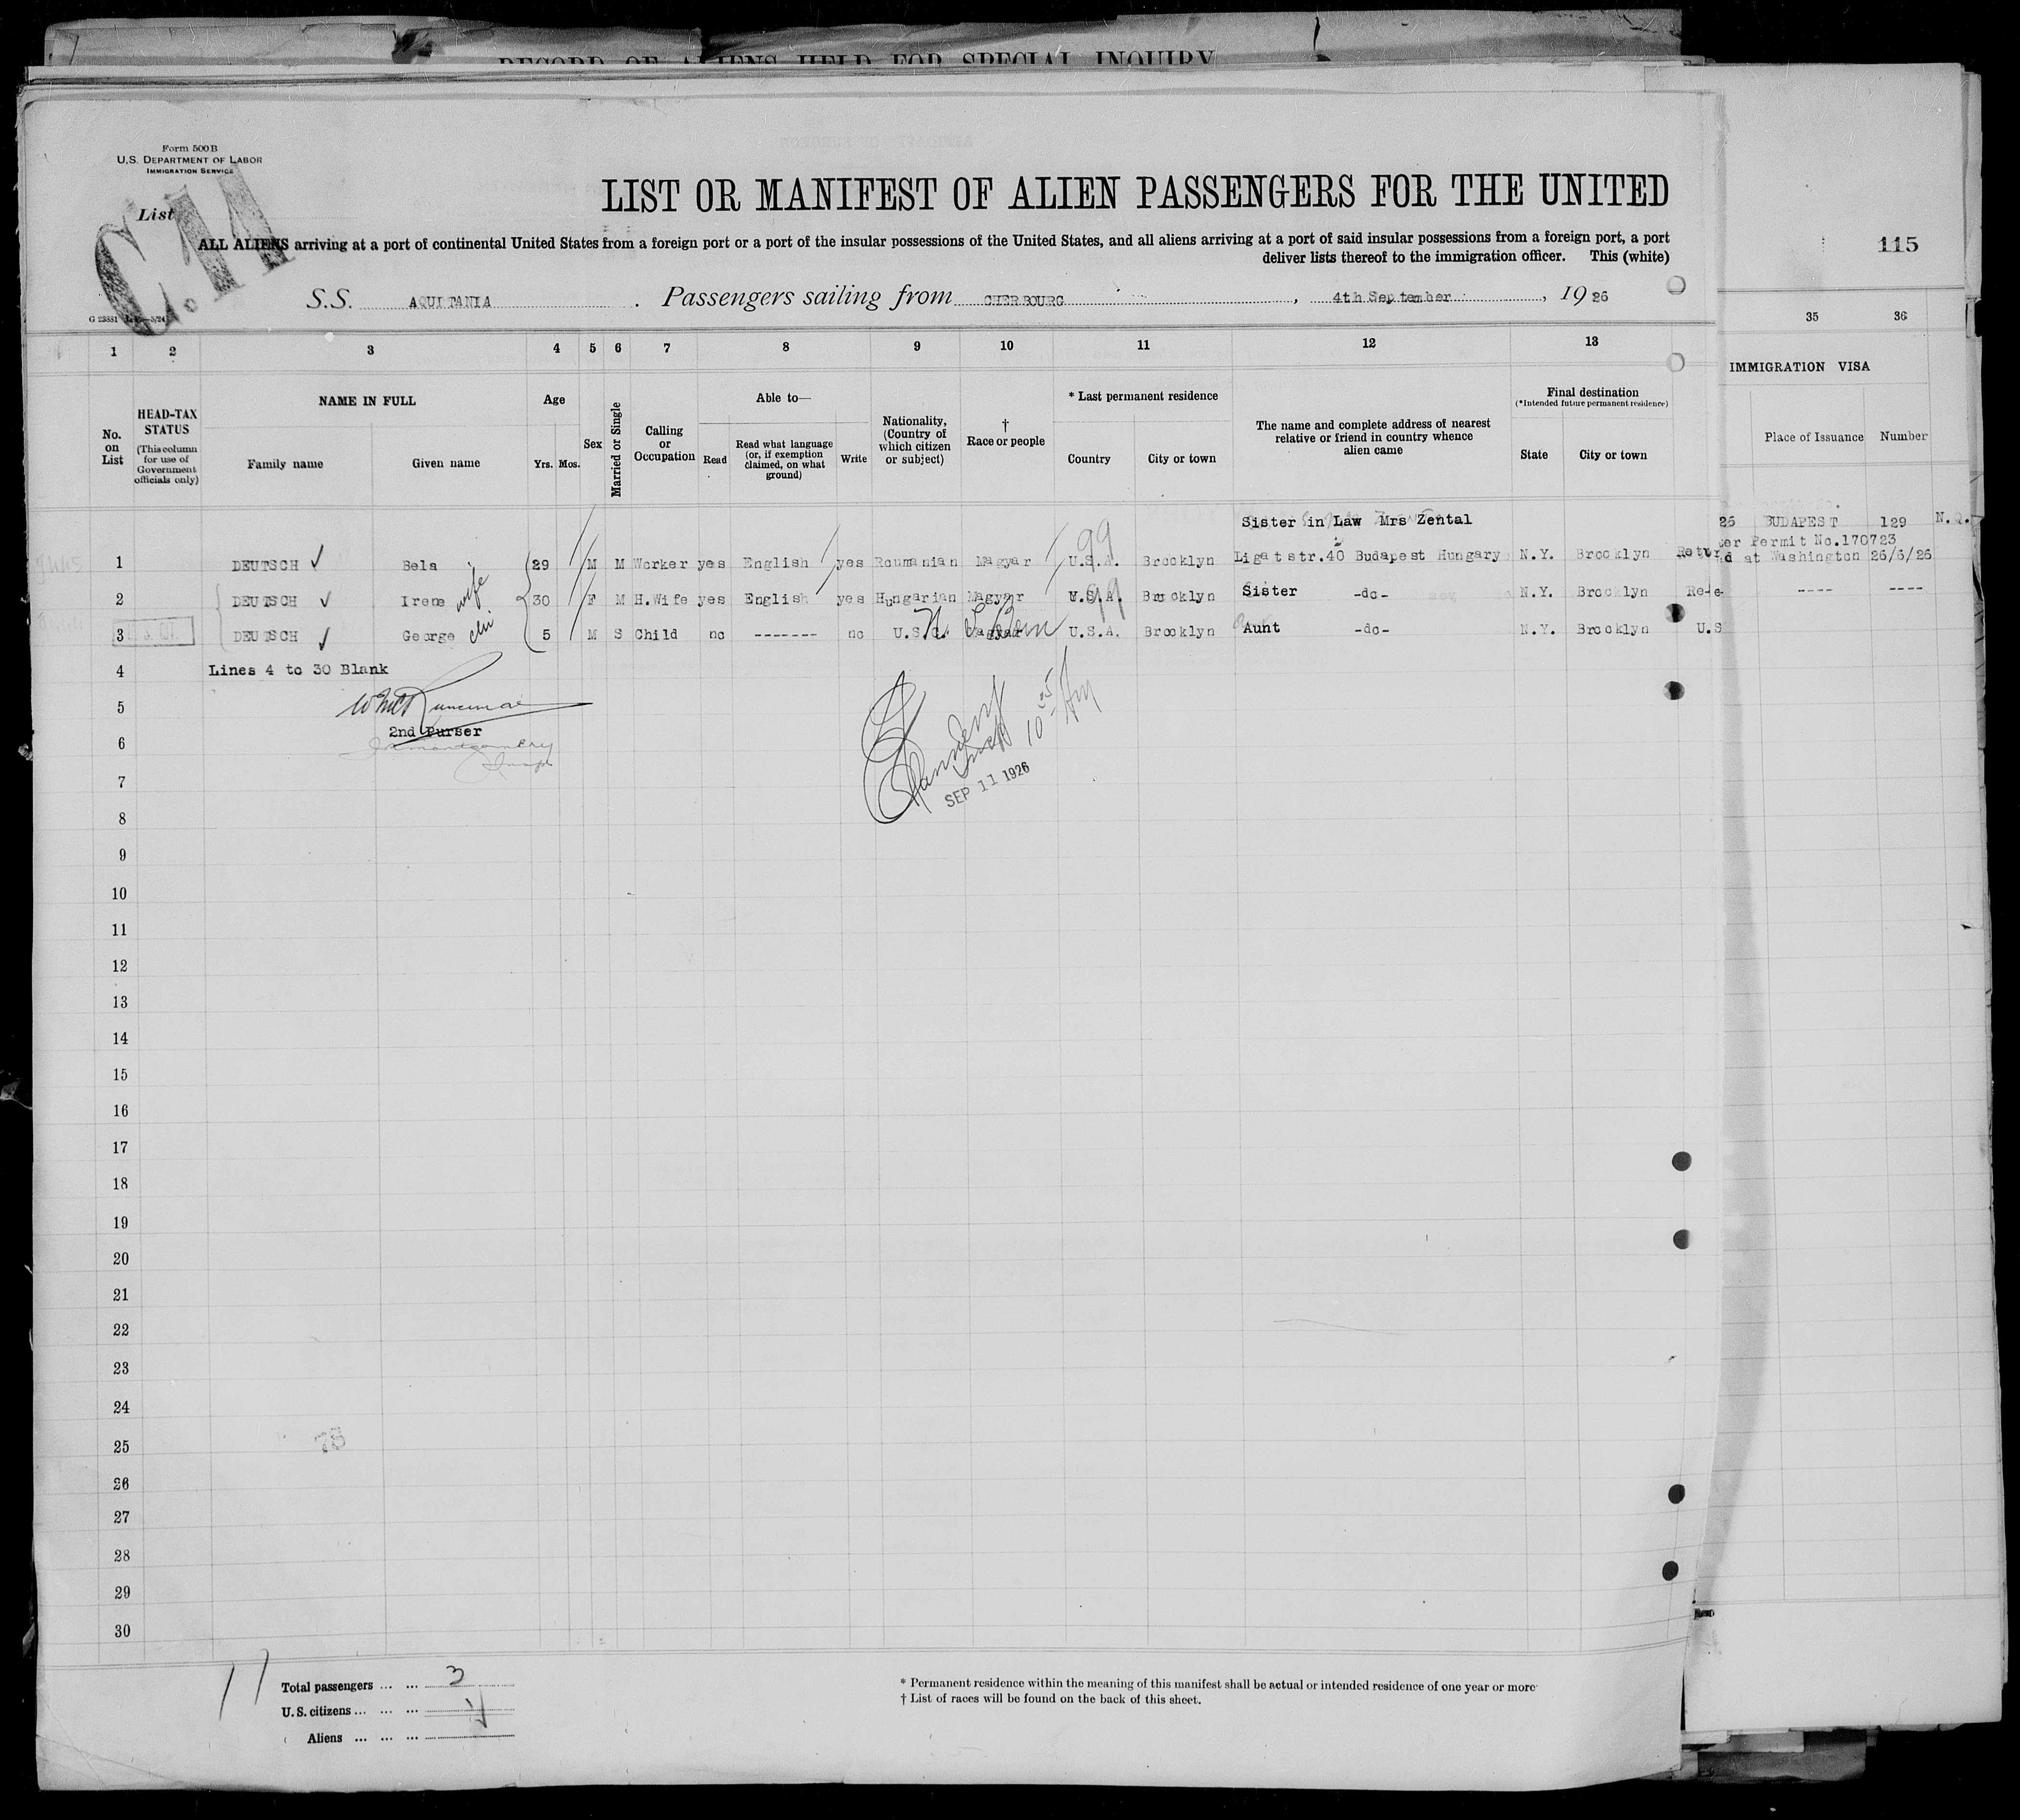 RECORD OF ALIENS HELD FOR SPECIAL INQUIRY
Form 500 B
U.S. DEPARTMENT OF LABOR
IMMIGRATION SERVICE
List
C.11
LIST OR MANIFEST OF ALIEN PASSENGERS FOR THE UNITED
ALL ALIENS arriving at a port of continental United States from a foreign port or a port of the insular possessions of the United States, and all aliens arriving at a port of said insular possessions from a foreign port, a port
deliver lists thereof to the immigration officer. This (white)
115
S.S. AQUITANIA . Passengers sailing from CHERBOURG , 4th September , 19 26
1 2 3 4 5 6 7 8 9 10 11 12 13 35 36
No. on List
HEAD-TAX STATUS (This column for use of Government officials only)
NAME IN FULL
Family name Given name
Age
Yrs. Mos.
Sex
Married or Single
Calling or Occupation
Able to—
Read
Read what language (or, if exemption claimed, on what ground)
Write
Nationality, (Country of which citizen or subject)
† Race or people
* Last permanent residence
Country City or town
The name and complete address of nearest relative or friend in country whence alien came
Final destination
(*Intended future permanent residence)
State City or town
IMMIGRATION VISA
Place of Issuance Number
Sister in Law Mrs Zental 26 BUDAPEST 129 N.Q.
99
1 DEUTSCH ✓ Bela 29 M M Worker yes English yes Roumanian Magyar U.S.A. Brooklyn Ligatstr.40 Budapest Hungary N.Y. Brooklyn Retur
er Permit No.170723
d at Washington 26/6/26
2 DEUTSCH ✓ Irene wife 30 F M H.Wife yes English yes Hungarian Magyar U.S.A. 99 Brooklyn Sister -do- N.Y. Brooklyn Re-e- ---- ----
3 DEUTSCH ✓ George chi 5 M S Child no ------- no U.S.C. Magyar U.S.A. Brooklyn Aunt -do- N.Y. Brooklyn U.S
4 Lines 4 to 30 Blank
5
2nd Purser
6
SEP 11 1926
7
8
9
10
11
12
13
14
15
16
17
18
19
20
21
22
23
24
25
26
27
28
29
30
Total passengers ... ... 3
U.S. citizens ... ... ...
Aliens ... ... ...
* Permanent residence within the meaning of this manifest shall be actual or intended residence of one year or more
† List of races will be found on the back of this sheet.